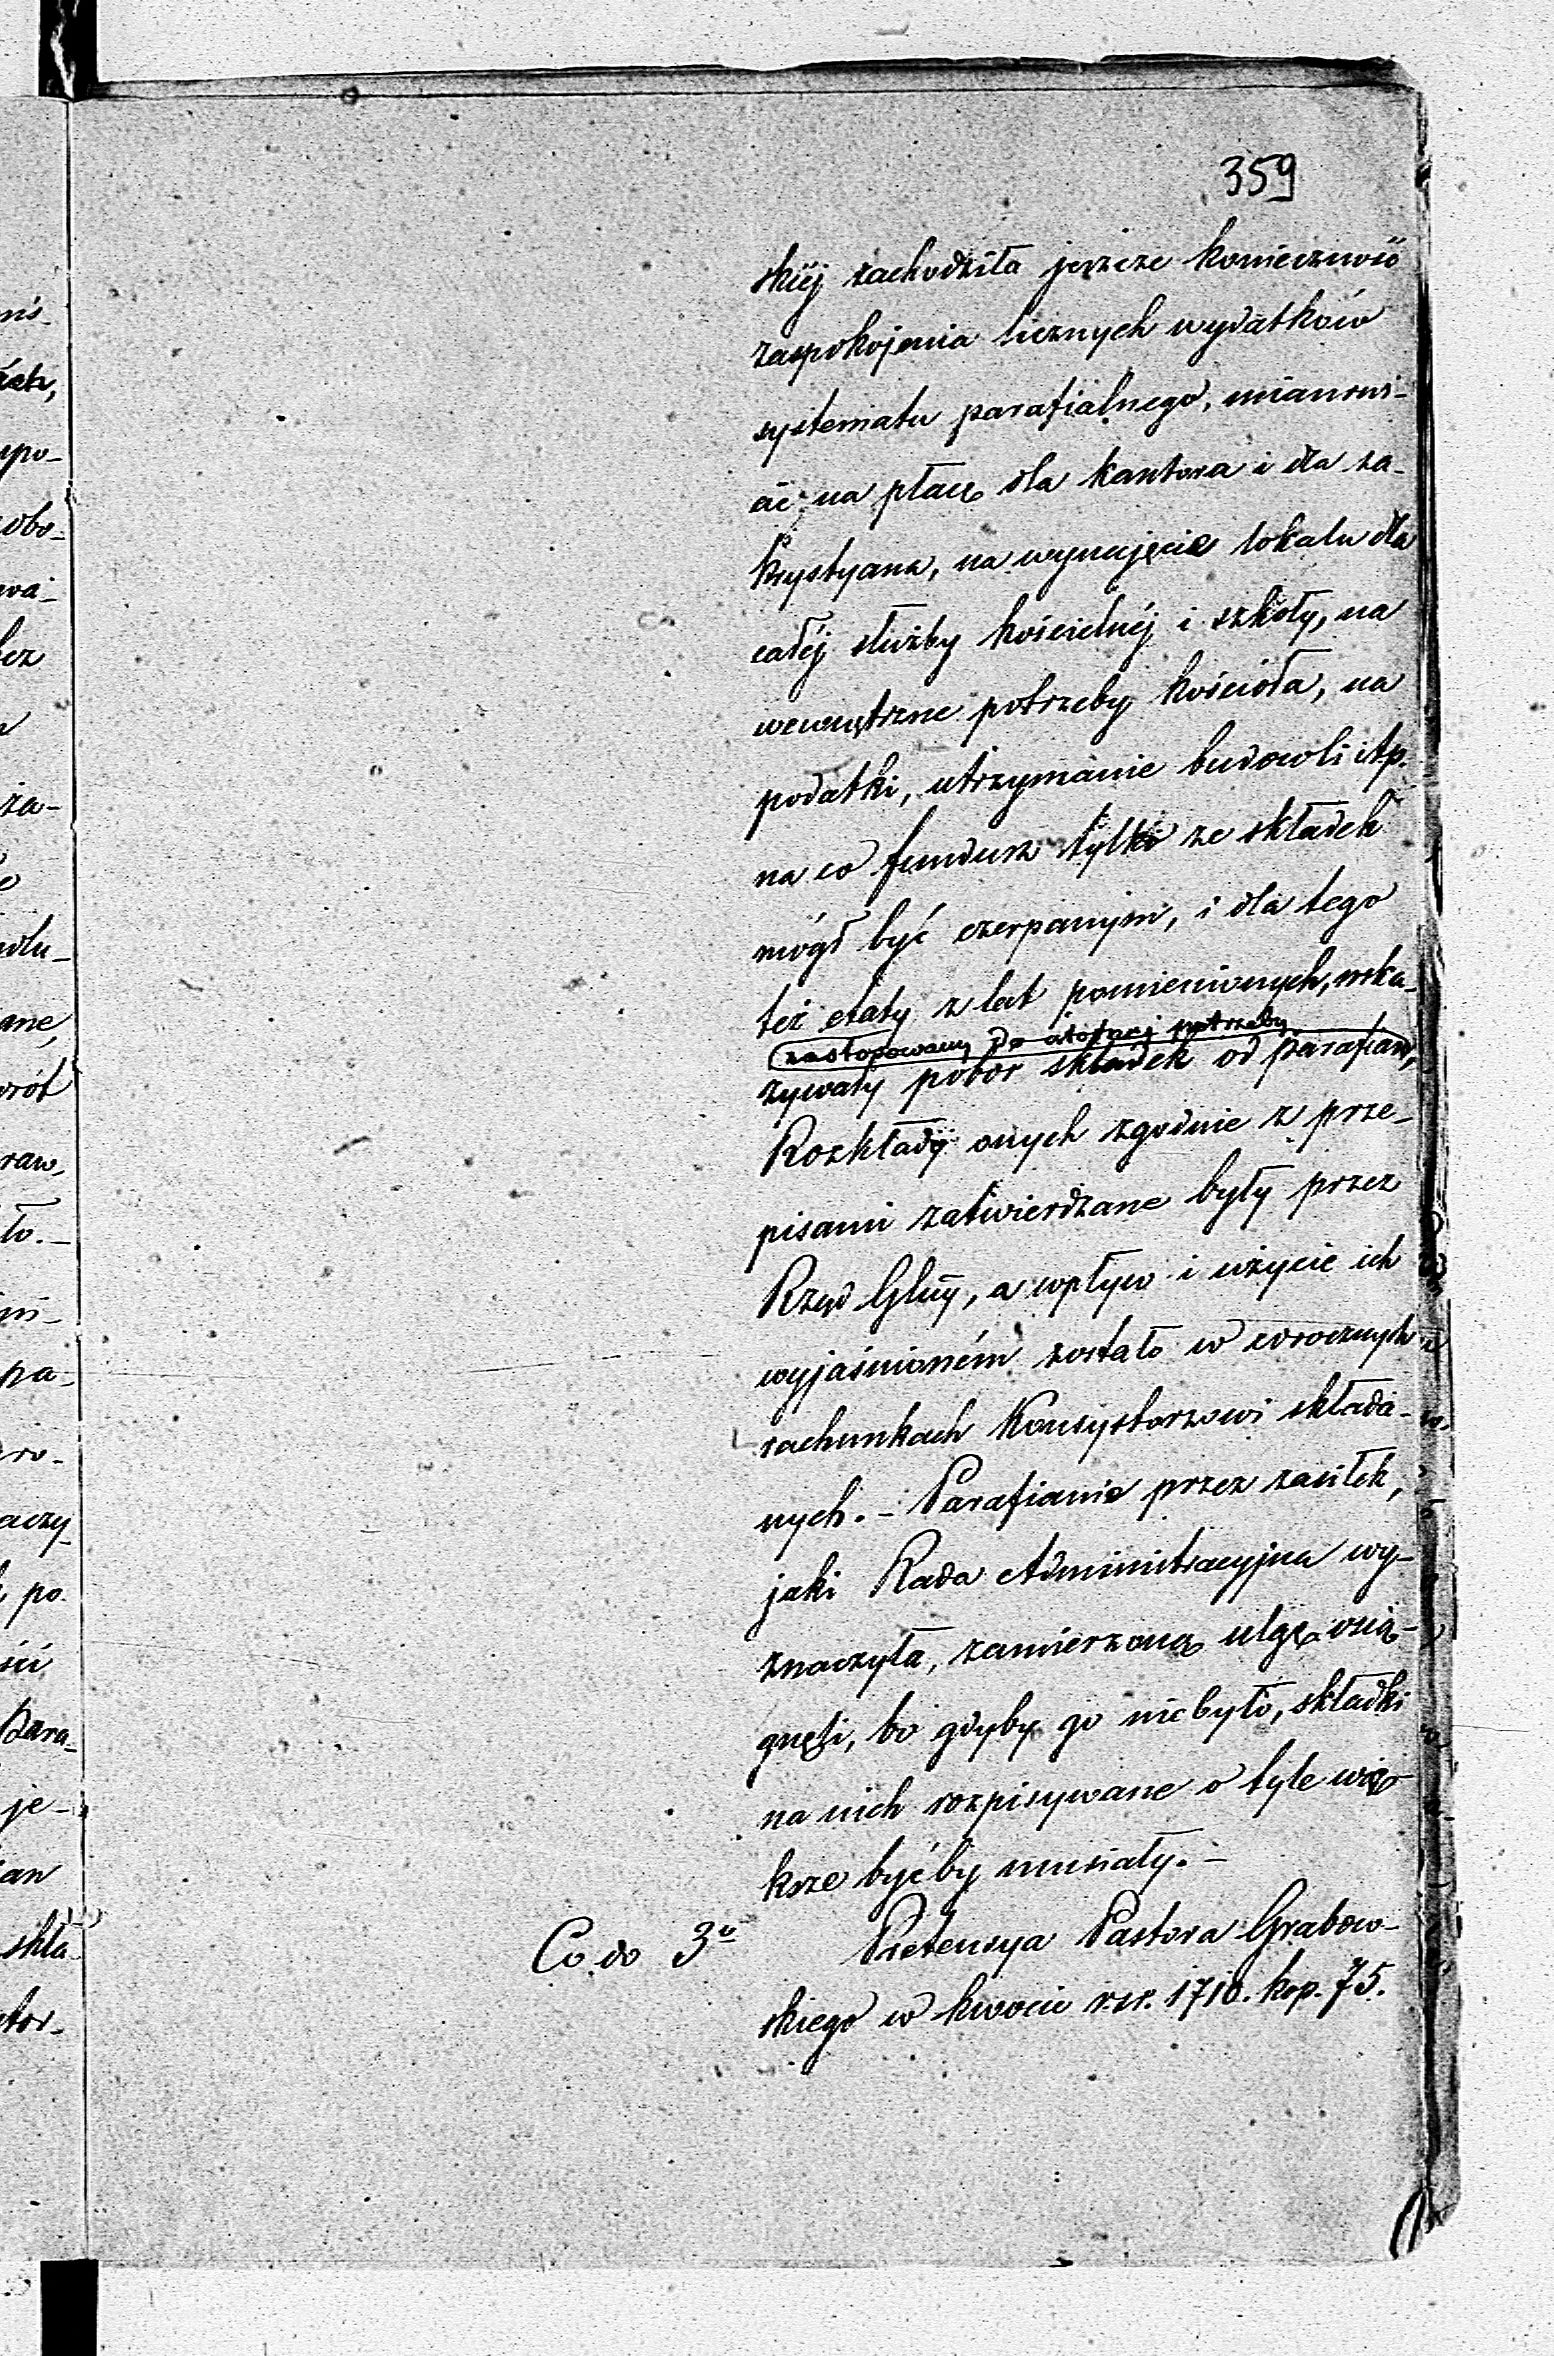 359
skiéj zachodziła jeszcze konieczność
zaspokojenia licznych wydatków
systematu parafialnego, mianowi-
cie: na płacę dla kantora i dla za-
krystyana, na wynajęcie lokalu dla
całéj służby kościelnéj i szkoły, na
wewnętrzne potrzeby kościoła, na
podatki, utrzymanie budowli itp.
na co fundusz tylko ze składek
mógł być czerpanym, i dla tego
też etaty z lat pomienionych, wska-
zastosowany do potrzeby
zywały pobór składek od parafian,
Rozkłady onych zgodnie z prze-
pisami zatwierdzane były przez
Rząd Glny, a wpływ i użycie ich
wyjaśnioném zostało w corocznych
rachunkach Konsystorzowi składa-
nych. – Parafianie przez zasiłek,
jaki Rada Administracyjna wy-
znaczyła, zamierzoną ulgę osią-
gnęli, bo gdyby go nie było, składki
na nich rozpisywane o tyle wię-
ksze być by musiały. –
Co do 3º Pretensya Pastora Grabow-
skiego w kwocie r.sr. 1710. kop. 75.